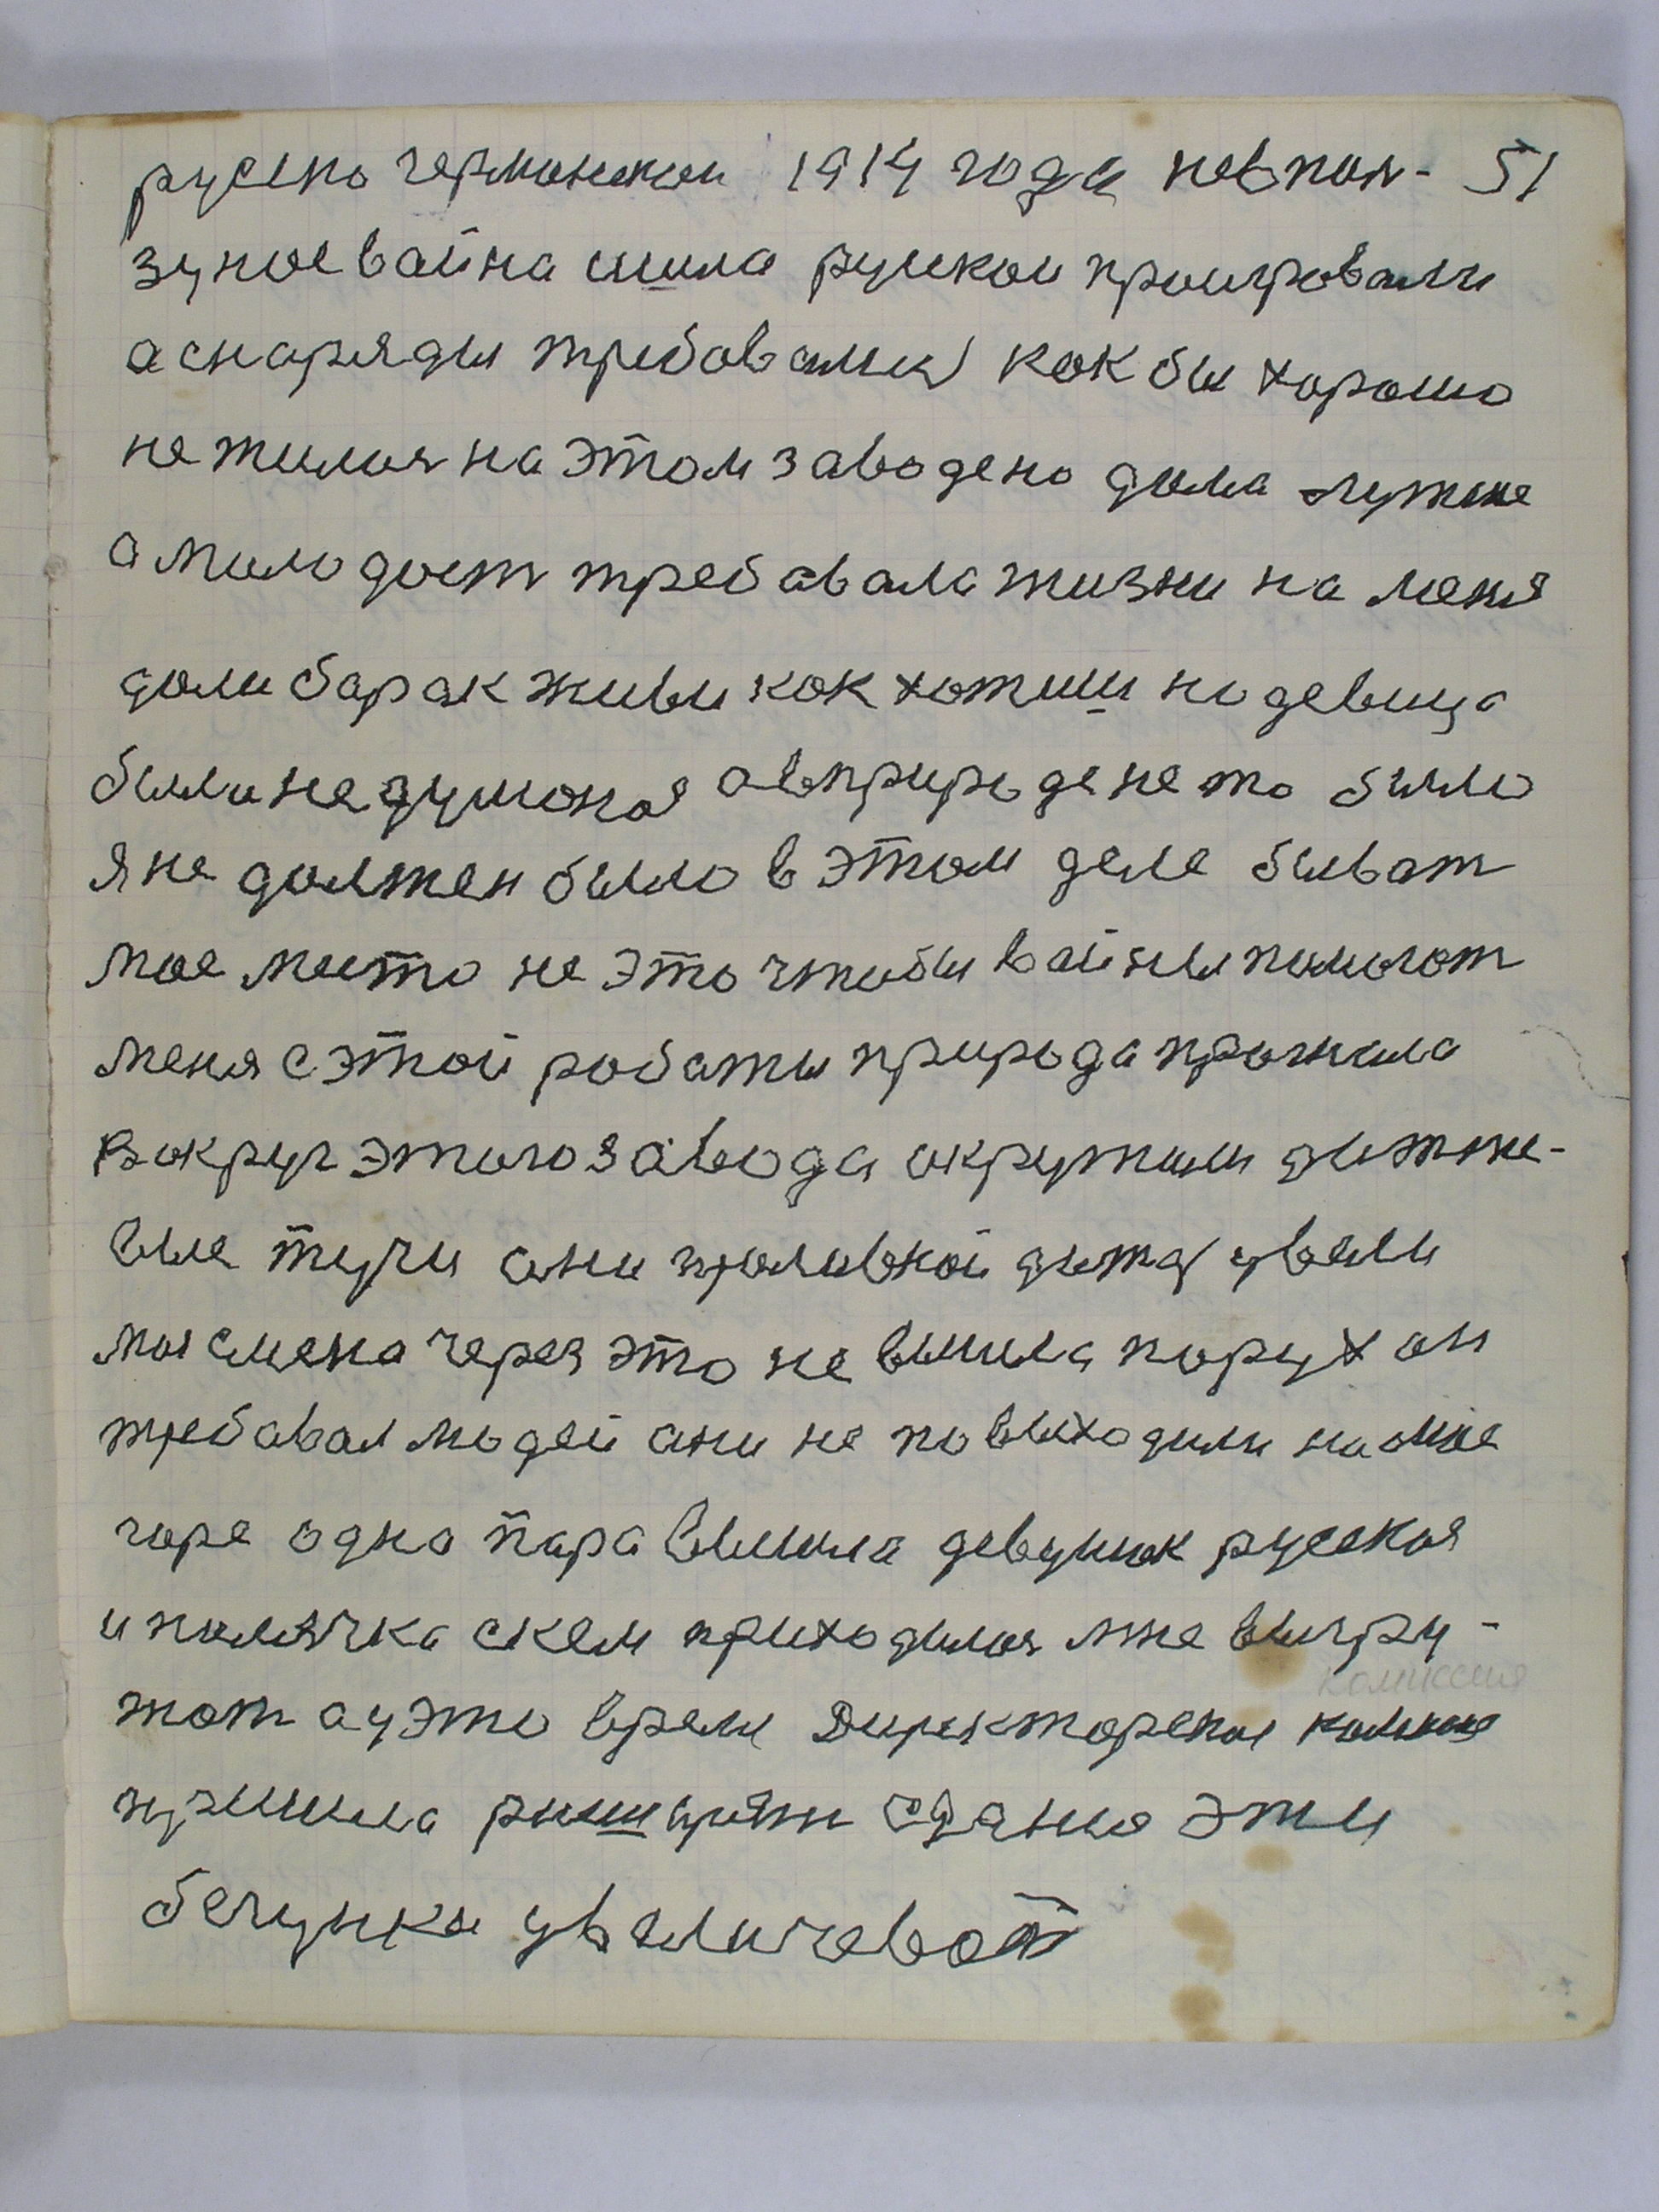 русско германской 1914 года невпол- 51
зуное вайна шыла рускои проигровали
а снаряды требовалися как бы хорошо
не жилоя на этом заводе но дома лутше
а молодост требавала жизни на меня
доли барак живи как хотиш но девица
были не думоноя а вприроде не то было
я не должен было в этом деле быват
мое место не это чтобы вайны помогат
меня с этой работы природа прогнала
вокруг этого завода окружыли дежже-
вые тучи они проливной дождь увели
моя смена через это не вышла порух он
требавал людей ани не повыходили на мое
горе одна пара вышла девушок русская
и полячка скем приходилоя мне выгру-
жат а у это время Директорская комисия
комиссия
пришыла рышырят здание эти
бегунки увеличеват